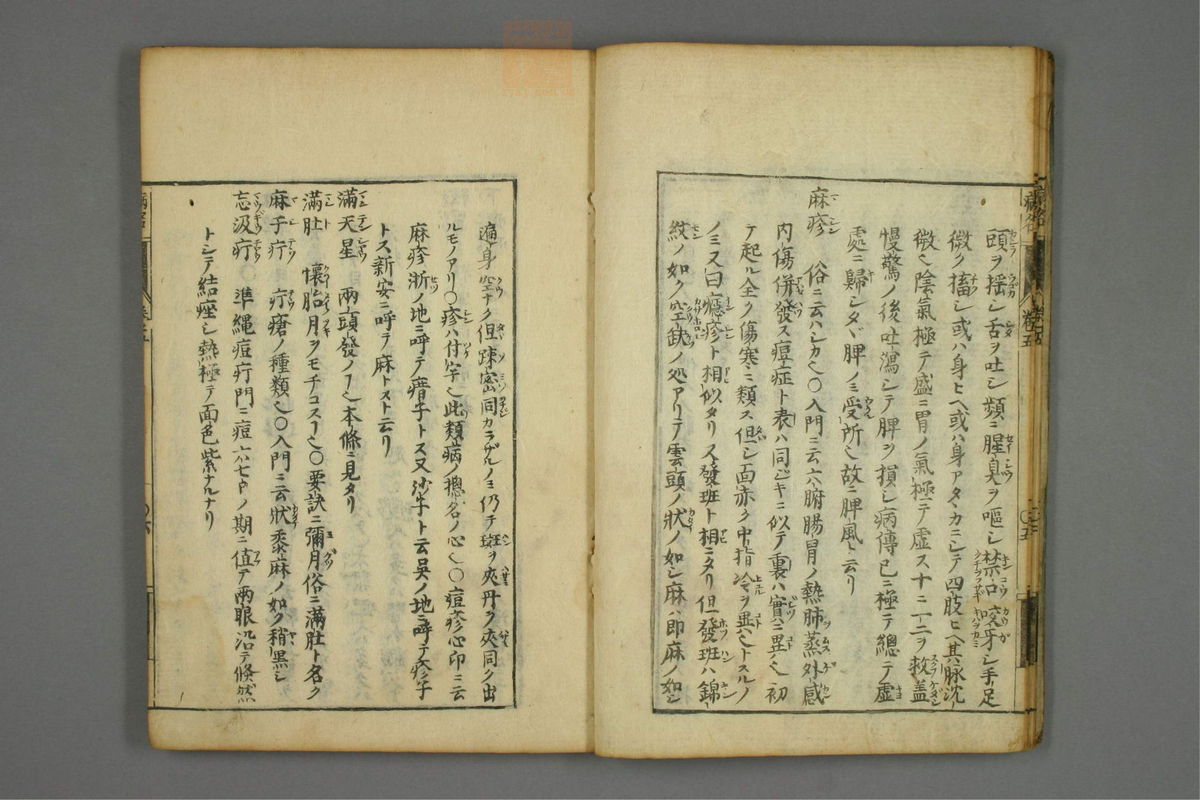 頭ヲ揺シ舌ヲ吐シ頻ニ腥臭ヲ嘔シ禁口咬牙シ手足
微ク搐シ或ハ身ヒヘ或ハ身アタヽカニシテ四肢ヒヘ其脉沈
微ヘ陰氣極テ盛ニ胃ノ氣極テ虚ス十ニ一二ヲ救蓋
慢驚ノ後吐瀉シテ脾ヲ損シ病傳已ニ極テ總テ虚
處ニ歸シタヾ脾ノミ受所ヘ故ニ脾風ト云リ
麻疹 俗ニ云ハシカヘ〇入門ニ云六腑腸胃ノ熱肺蒸外感
内傷併發ス痘症ト表ハ同ジキニ似テ裏ハ實ニ異ヘ初
テ起ル全ク傷寒ニ類ス但シ面赤ク中指冷ヲ異ヘトスルノ
ノミス曰癮疹ト相似タリス發斑ト相ニタリ但發斑ハ錦
紋ノ如ク空缺ノ処アリテ雲頭ノ狀ノ如シ麻ハ即麻ノ如シ
病名 卷五 〇五
遍身空ナク但疎密同カラザルノミ仍チ斑ヲ夾丹ヲ夾同ク出
ルモノアリ〇疹ハ付字ヘ此類病ノ摠名ノ心ヘ〇痘疹心印ニ云
麻疹浙ノ地ニ呼テ㾦子トス又沙子ト云吳ノ地ニ呼テ疹子
トス新安ニ呼テ麻トスト云リ
滿天星 兩頭發ノヿヘ本條ニ見タリ
滿肚 懷胎月ヲモチコスヿヘ〇要訣ニ彌月俗ニ滿肚ト名ク
麻子疔 疔瘡ノ種類ヘ〇入門ニ云狀黍麻ノ如ク稍黒シ
忘汲疔 〇準繩痘疔門ニ痘六七日ノ期ニ値テ兩眼沿テ倐然
トシテ結痤シ熱極テ面色紫ナルナリ
病名 卷五 〇六